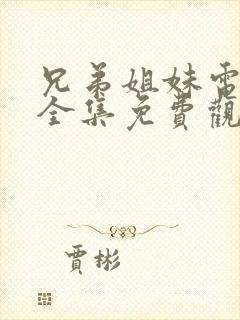 兄弟姐妹電
全集免費觀
賈彬